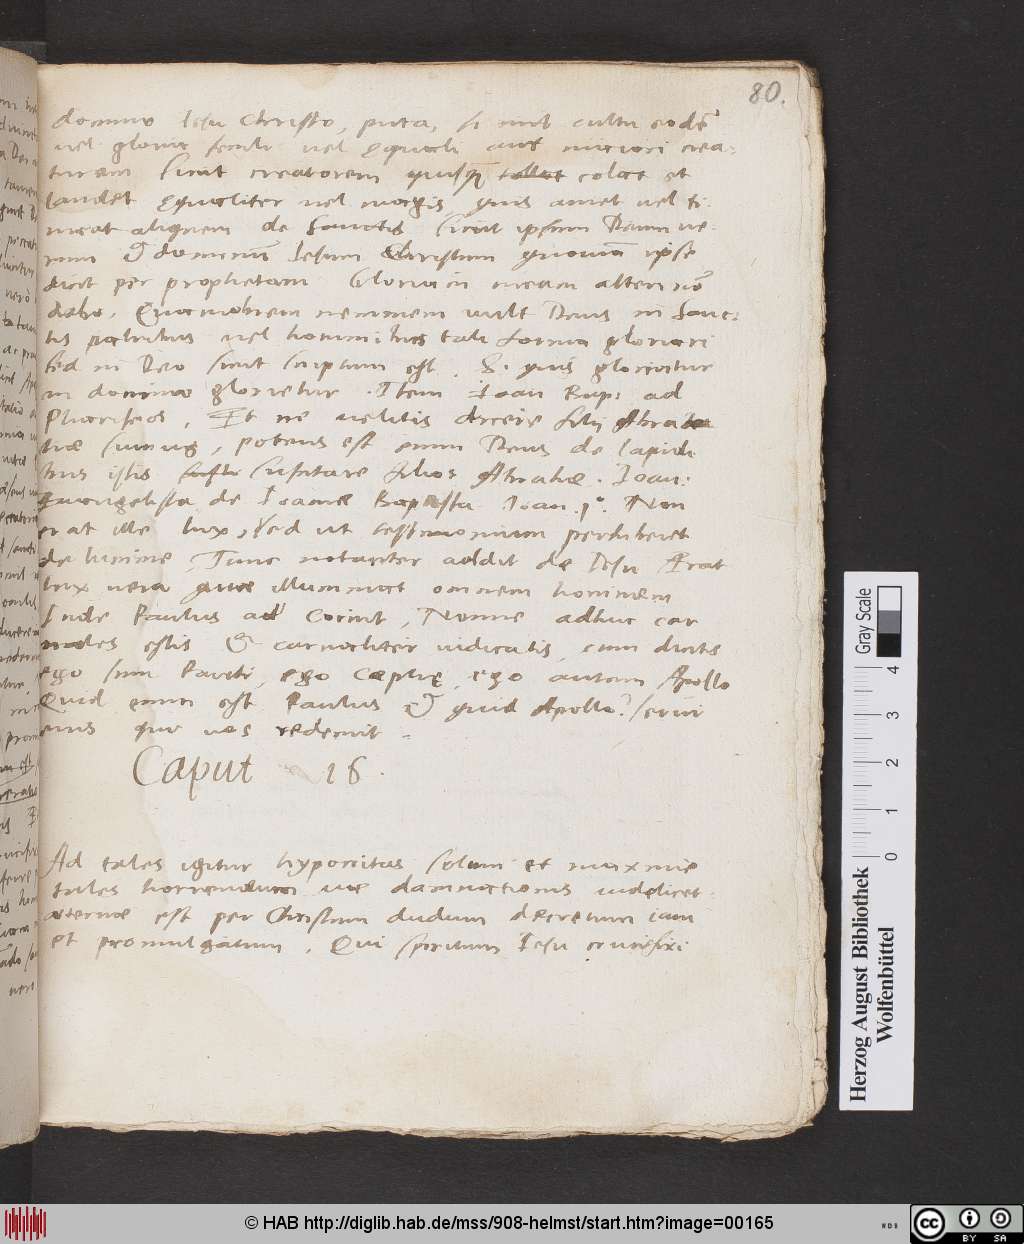 80.
domino Iesu Christo, puta, si cultu eodē
vel gloria simili vel equali aut maiori crea-
turam sicut creatorem quisq colat et
laudet equaliter vel magis quis amet vel ti-
meat aliquem de sanctis sicut ipsum Deum ve-
rum & dominū Iesum Christum quoniā ipse
dicit per prophetam Gloriam meam alteri nō
dabo. Quamobrem neminem vult Deus in sanc-
tis patribus vel hominibus tali forma gloriari
sed in Deo sicut scriptum est. S. quis gloriatur
in domino glorietur. Item Ioan Bap: ad
Phariseos, Et ne velitis dicere filij Abra
hae sumus, potens est enim Deus de lapidi
bus istis suscitare filios Abrahae. Ioan:
Euangelista de Ioanne Baptista Ioan. 1º. Non
erat ille lux, sed ut testimonium perhiberet
de lumine, Tunc notanter addit de Iesu Erat
lux vera quae illuminat omnem hominem
Inde Paulus ad Corint, Nonne adhuc car
nales estis & carnaliter iudicatis, cum dicitis
ego sum Pauli, ego Cephę, ego autem Apollo
Quid enim est Paulus & quid Apollo? serui
eius qui vos redemit.
Caput 16.
Ad tales igitur hypocritas solum et maxime
tales horrendum vae damnationis videlicet
aeternae est per Christum dudum decretum iam
et promulgatum. Qui spiritum Iesu crucifixi
Herzog August Bibliothek
Wolfenbüttel
Gray Scale
4
3
2
1
0
© HAB http://diglib.hab.de/mss/908-helmst/start.htm?image=00165
WDB
cc
BY SA